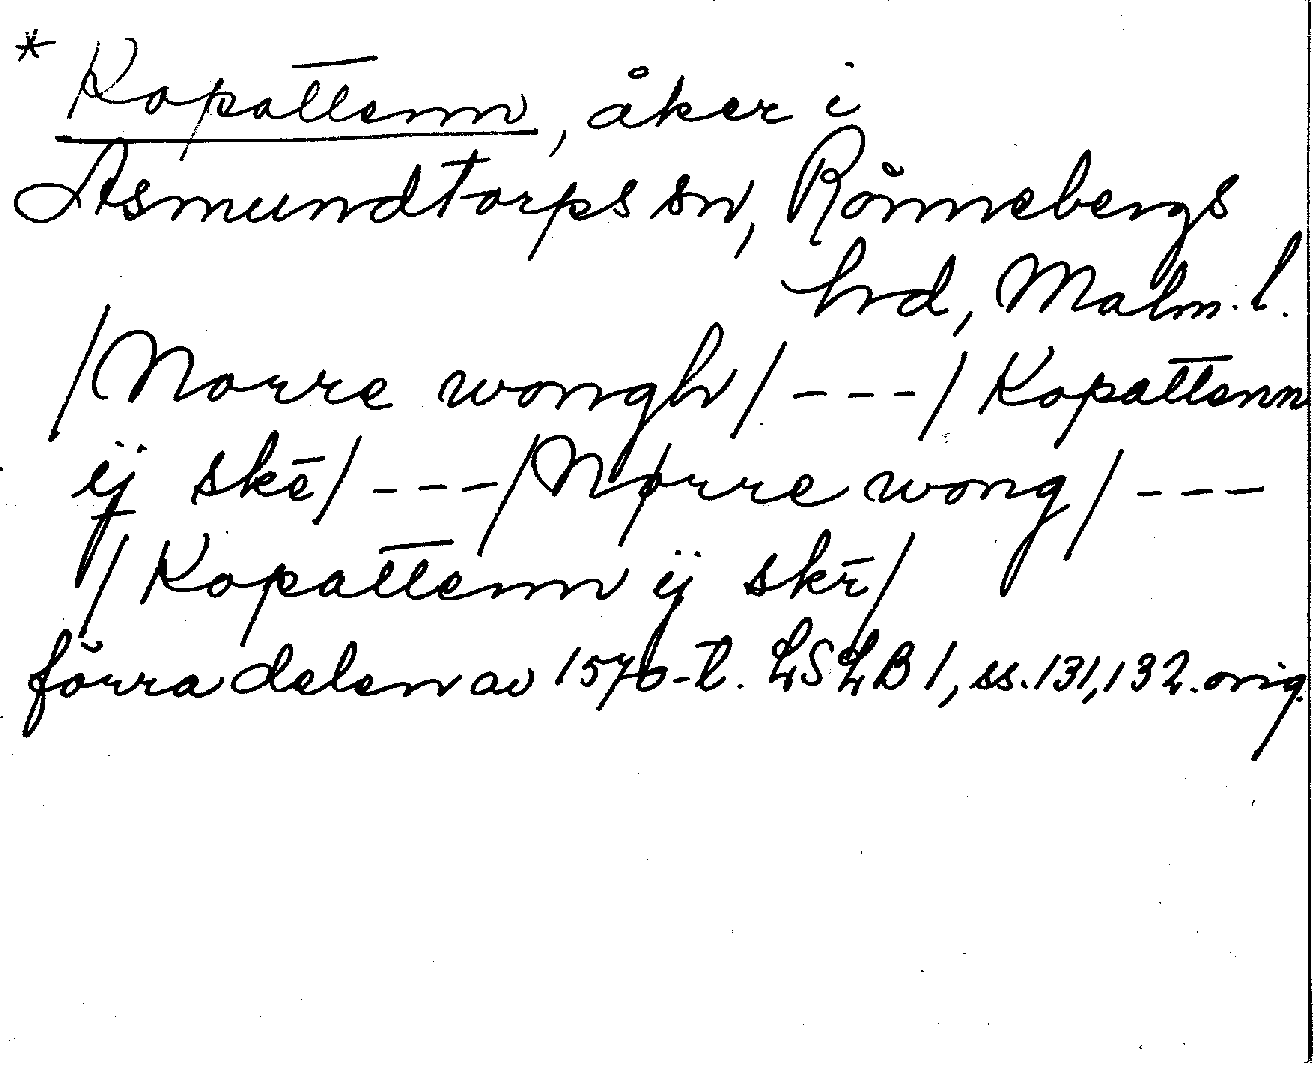 * Kopattenn, åker i
Asmundtorps sn, Rönnebergs
hrd, Malm. l.
/Norre wongh/ --- / Kopattenn
ij skē/ --- /Nørre wong/ ---
/ Kopattenn ij skē/
förra delen av 1570-t. LSLB 1, ss. 131, 132. orig.